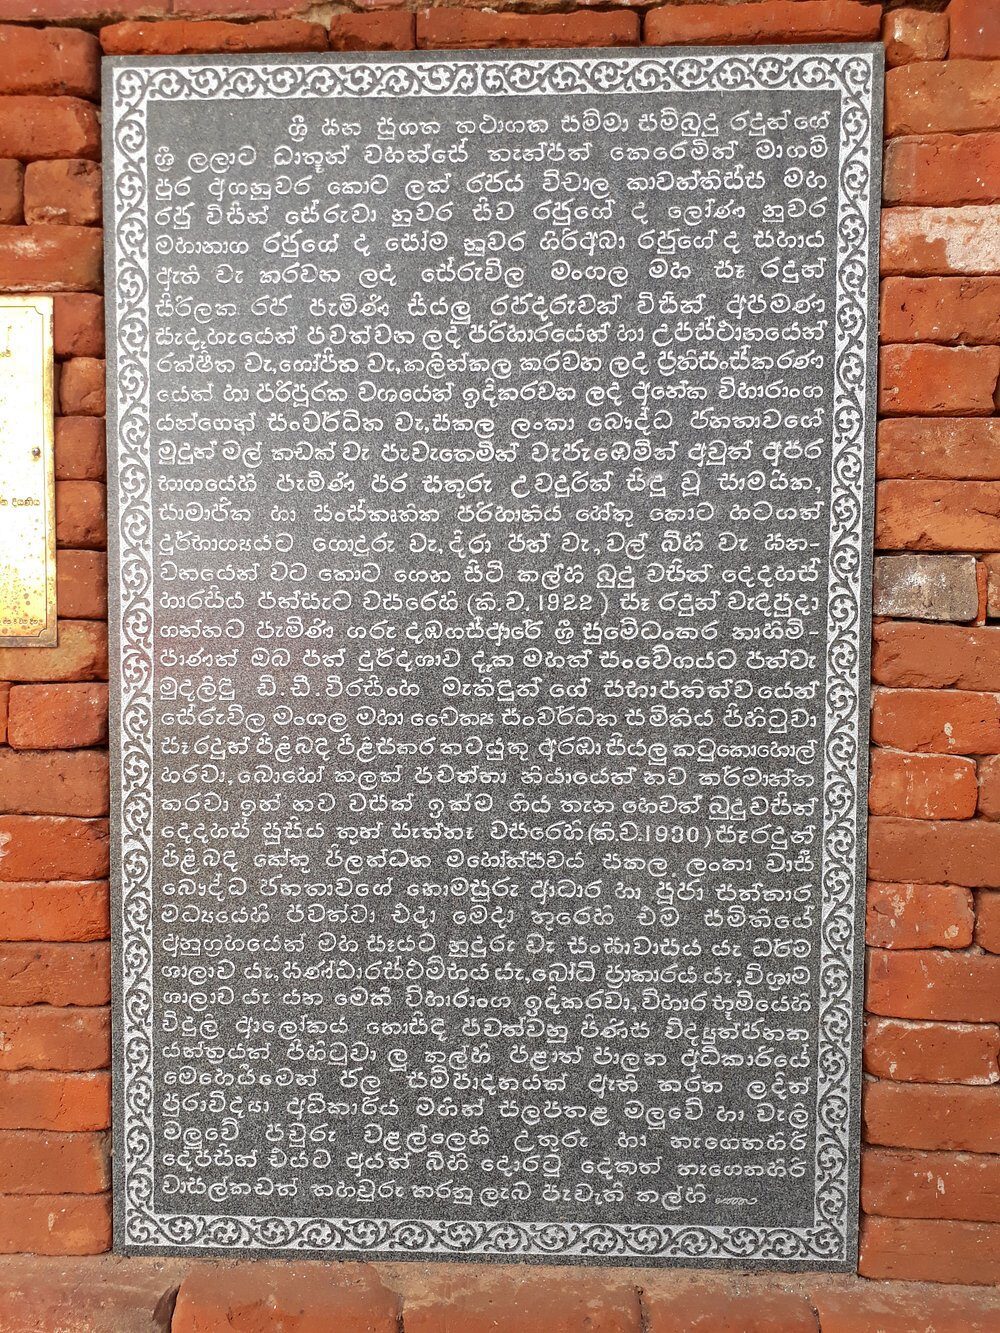 ශ්‍රී ඝන සුගත තථාගත සම්මා සම්බුදු රදුන්ගේ
ශ්‍රී ලලාට ධාතූන් වහන්සේ තැන්පත් කෙරෙමින් මාගම්
පුර අගනුවර කොට ලක් රජය විචාල කාවන්තිස්ස මහ
රජු විසින් සේරුවා නුවර සිව රජුගේ ද ලෝණ නුවර
මහානාග රජුගේ ද සෝම නුවර ගිරිඅබා රජුගේ ද සහාය
ඇති වැ කරවන ලද සේරුවිල මංගල මහ සෑ රදුන්
සිරිලක රජ පැමිණි සියලු රජදරුවන් විසින් අපමණ
සැදැහැයෙන් පවත්වන ලද පරිහාරයෙන් හා උපස්ථානයෙන්
රක්ෂිත වැ, ගෝපිත වැ, කලින්කල කරවන ලද ප්‍රතිසංස්කරණ
යෙන් හා පරිපූරක වශයෙන් ඉදිකරවන ලද අනේක විහාරාංග
යන්ගෙන් සංවර්ධිත වැ, සකල ලංකා බෞද්ධ ජනතාවගේ
මුදුන් මල් කඩක් වැ පැවැතෙමින් වැජැඹෙමින් අවුත් අපර
භාගයෙහි පැමිණි පර සතුරු උවදුරින් සිඳු වූ සාමයික,
සාමාජික හා සංස්කෘතික පරිහානිය හේතු කොට හටගත්
දුර්භාග්‍යයට ගොදුරු වැ, දිරා පත් වැ, වල් බිහි වැ ඝන-
වනයෙන් වට කොට ගෙන සිටි කල්හි බුදු වසින් දෙදහස්
හාරසිය පන්සැට වසරෙහි (ක්‍රි.ව. 1922) සෑ රදුන් වැඳපුදා
ගන්නට පැමිණි ගරු දඹගස්ආරේ ශ්‍රී සුමේධංකර නාහිමි-
පාණන් ඔබ පත් දුර්දශාව දැක මහත් සංවේගයට පත්වැ
මුදලිඳු ඩී.ඩී. වීරසිංහ මැතිඳුන් ගේ සභාපතිත්වයෙන්
සේරුවිල මංගල මහා චෛත්‍ය සංවර්ධන සමිතිය පිහිටුවා
සෑ රදුන් පිළිබඳ පිළිස්කර කටයුතු අරඹා සියලු කටුකොහොල්
හරවා, බොහෝ කලක් පවත්නා නියායෙන් නව කර්මාන්ත
කරවා ඉන් නව වසක් ඉක්ම ගිය තැන හෙවත් බුදුවසින්
දෙදහස් සුසිය තුන් සැත්තෑ වසරෙහි (ක්‍රි.ව. 1930) සෑ රදුන්
පිළිබඳ කේතු පිලන්ධන මහෝත්සවය සකල ලංකා වාසී
බෞද්ධ ජනතාවගේ නොමසුරු ආධාර හා පූජා සත්කාර
මධ්‍යයෙහි පවත්වා එදා මෙදා තුරෙහි එම සමිතියේ
අනුග්‍රහයෙන් මහ සෑයට නුදුරු වැ සංඝාවාසය යැ ධර්ම
ශාලාව යැ, ඝණ්ඨාරස්ථම්භය යැ, බෝධි ප්‍රාකාරය යැ, විශ්‍රාම
ශාලාව යැ යන මෙකී විහාරාංග ඉදිකරවා, විහාර භූමියෙහි
විදුලි ආලෝකය නොසිඳී පවත්වනු පිණිස විද්‍යුත්ජනක
යන්ත්‍රයක් පිහිටුවා ලූ කල්හි පළාත් පාලන අධිකාරියේ
මෙහෙයීමෙන් ජල සම්පාදනයක් ඇති කරන ලදින්
පුරාවිද්‍යා අධිකාරිය මගින් සලපතළ මලුවේ හා වැලි
මලුවේ පවුරු වළල්ලෙහි උතුරු හා නැගෙනහිරි
දෙපසින් එයට අයත් බිහි දොරටු දෙකත් නැගෙනහිරි
වාසල්කඩත් තහවුරු කරනු ලැබ පැවැති කල්හි